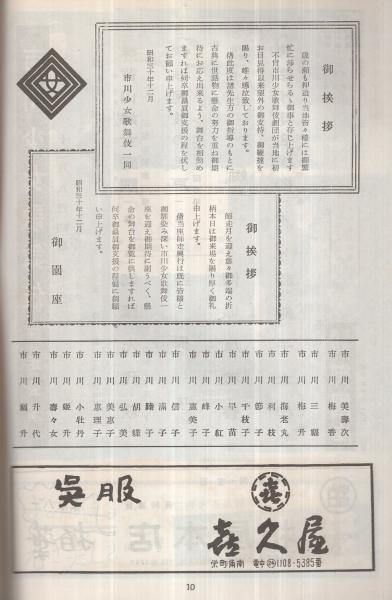 御挨拶
歳の瀬も押迫り当地皆々様には御繁
忙に渉らせらるゝ御事と存じ上げます
不肖市川少女歌舞伎劇団が当地に初
お目見得以来望外の御支持、御鞭撻を
賜り、唯々感泣致しております。
偖此度は諸先生方の御指導のもとに
古典に世話物に懸命の努力を重ね御期
待にお応え出来るよう、舞台を相勤め
ますれば何卒御贔屓御支援の程を伏し
てお願い申上げます。
昭和三十年十二月
市川少女歌舞伎一同
御挨拶
師走月を迎え愈々御多端の折
柄本日は御来場を賜り厚く御礼
申上げます。
偖当座師走興行は既に皆様と
御馴染み深い市川少女歌舞伎一
座を迎え御期待に副うべく、懸
命の舞台を御覧に供しますれば
何卒御贔屓御支援の程偏に御願
い申上げます。
昭和三十年十二月
御園座
市川美壽次
市川梅香
市川梅升
市川三福
市川海老丸
市川利枝
市川節子
市川千枝子
市川早苗
市川小紅
市川峰子
市川恵美子
市川信子
市川清子
市川勝子
市川胡蝶
市川弘美
市川美恵子
市川恵理子
市川小牡丹
市川姫升
市川壽々女
市川升代
市川福升
呉服
㐂
㐂久屋
栄町角南 電中(24)1108・5385番
10